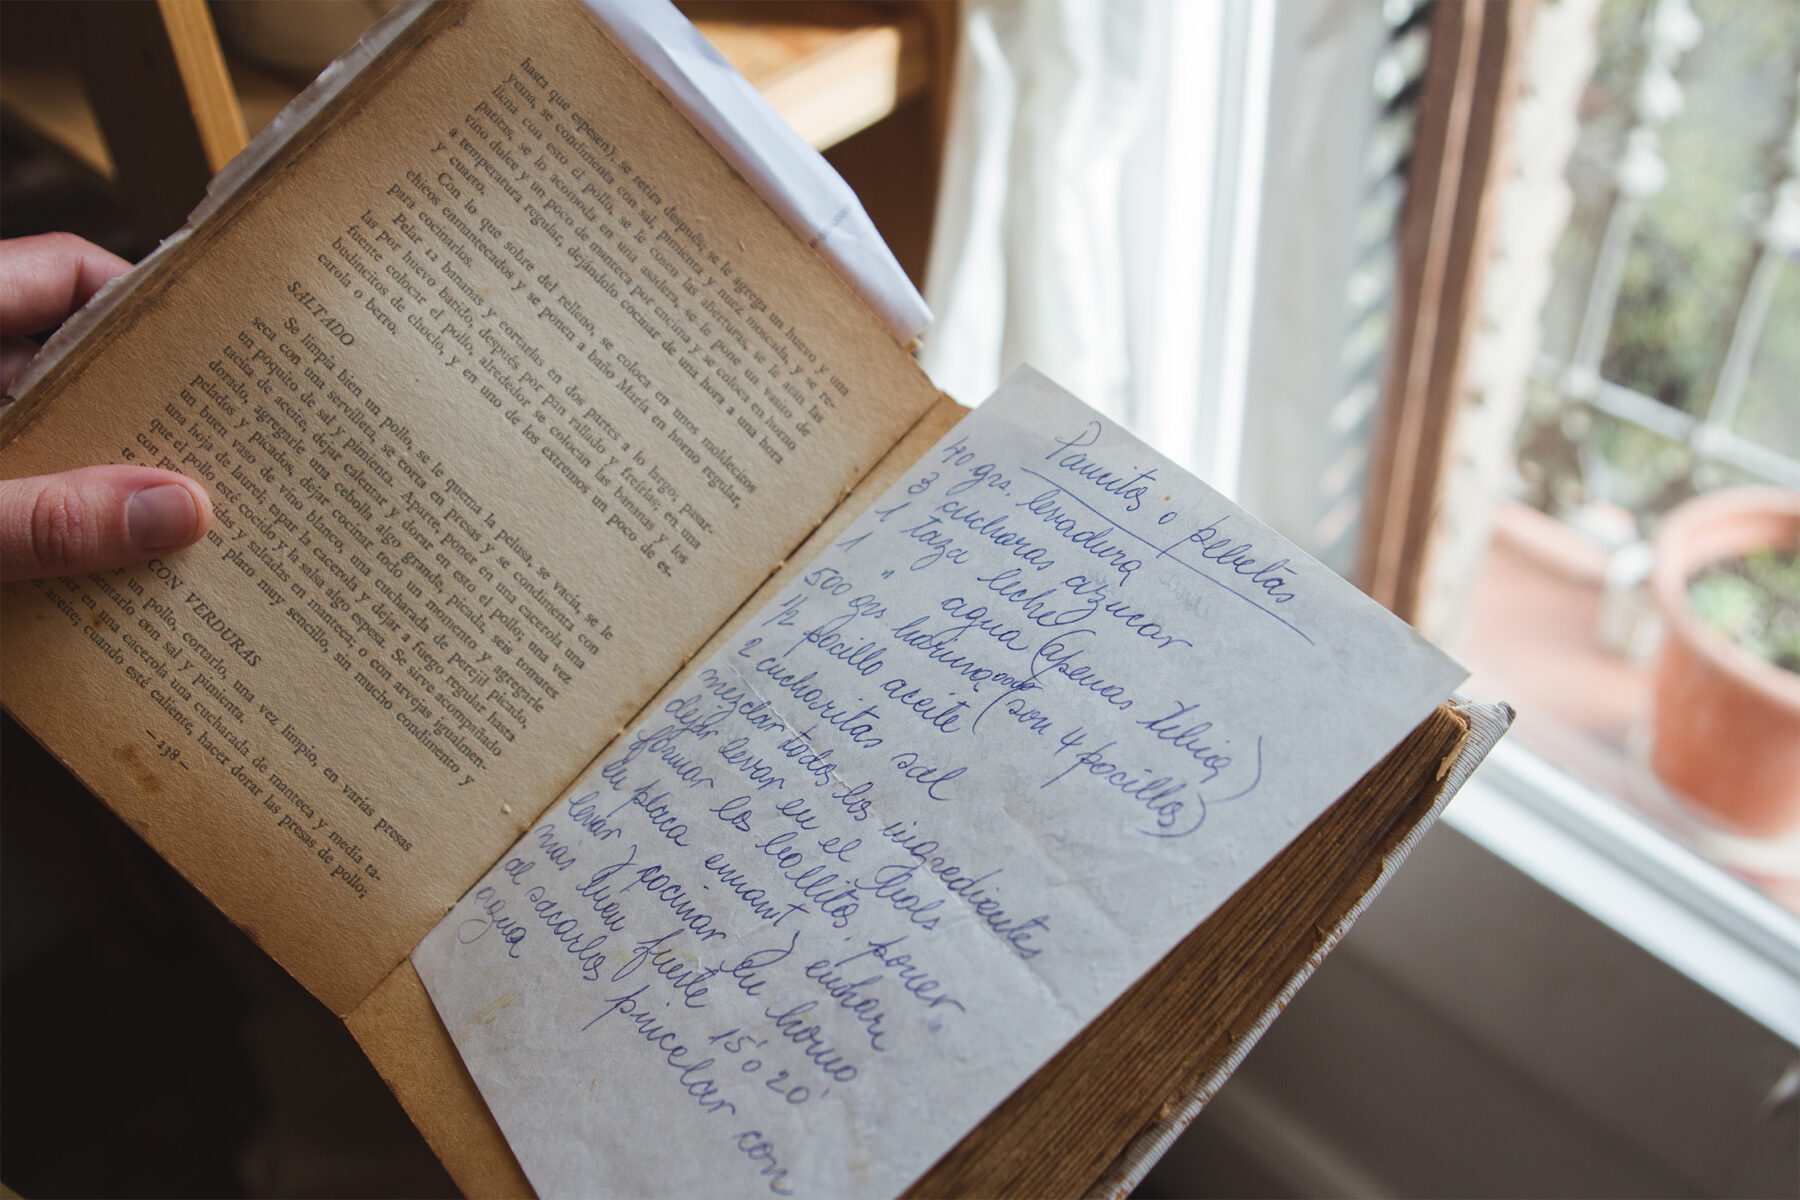 hasta que espesen), se retira después, se le agrega un huevo y una
yema, se condimenta con sal, pimienta y nuez moscada, y se re-
llena con esto el pollo, se le cosen las aberturas, se le atan las
patitas, se lo acomoda en una asadera, se le pone un vasito de
vino dulce y un poco de manteca por encima y se coloca en horno
a temperatura regular, dejándolo cocinar de una hora a una hora
y cuarto.
Con lo que sobre del relleno, se coloca en unos moldecitos
chicos enmantecados y se ponen a baño María en horno regular,
para cocinarlos.
Pelar 12 bananas y cortarlas en dos partes a lo largo; pasar-
las por huevo batido, después por pan rallado y freírlas; en una
fuente colocar el pollo, alrededor se colocan las bananas y los
budincitos de choclo, y en uno de los extremos un poco de es-
carola o berro.
SALTADO
Se limpia bien un pollo, se le quema la pelusa, se vacía, se le
seca con una servilleta, se corta en presas y se condimenta con
un poquito de sal y pimienta. Aparte, poner en una cacerola una
tacita de aceite, dejar calentar y dorar en esto el pollo; una vez
dorado, agregarle una cebolla algo grande, picada, seis tomates
pelados y picados, dejar cocinar todo un momento y agregarle
un buen vaso de vino blanco, una cucharada de perejil picado,
una hoja de laurel; tapar la cacerola y dejar a fuego regular hasta
que el pollo esté cocido y la salsa algo espesa. Se sirve acompañado
con papas y saltadas en manteca; o con arvejas igualmen-
te un plato muy sencillo, sin mucho condimento y
CON VERDURAS
un pollo, cortarlo, una vez limpio, en varias presas
con sal y pimienta.
en una cacerola una cucharada de manteca y media ta-
aceite; cuando esté caliente, hacer dorar las presas de pollo;
— 238 —
Pancitos o pebetas
40 grs. levadura
3 cucharas azucar
1 taza leche
1 " agua (apenas tibia)
500 grs. harina (son 4 pocillos)
1/2 pocillo aceite
2 cucharitas sal
mezclar todos los ingredientes
dejar levar en el bols
formar los bollitos, poner
en placa enmant y enhari
levar y cocinar en horno
mas bien fuerte 15' o 20'
al sacarlos pincelar con
agua